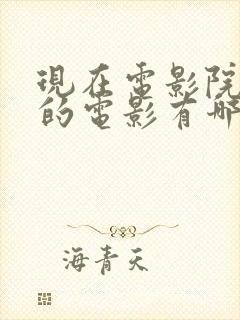 現在電影院
的電影有哪
海青天